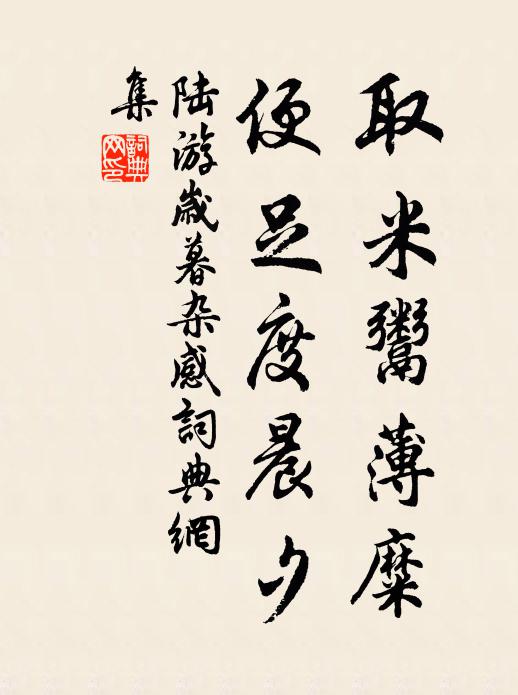 取米鬻薄糜
便足度晨夕
陆游歲暮杂感詞典網
集
詞典
网印